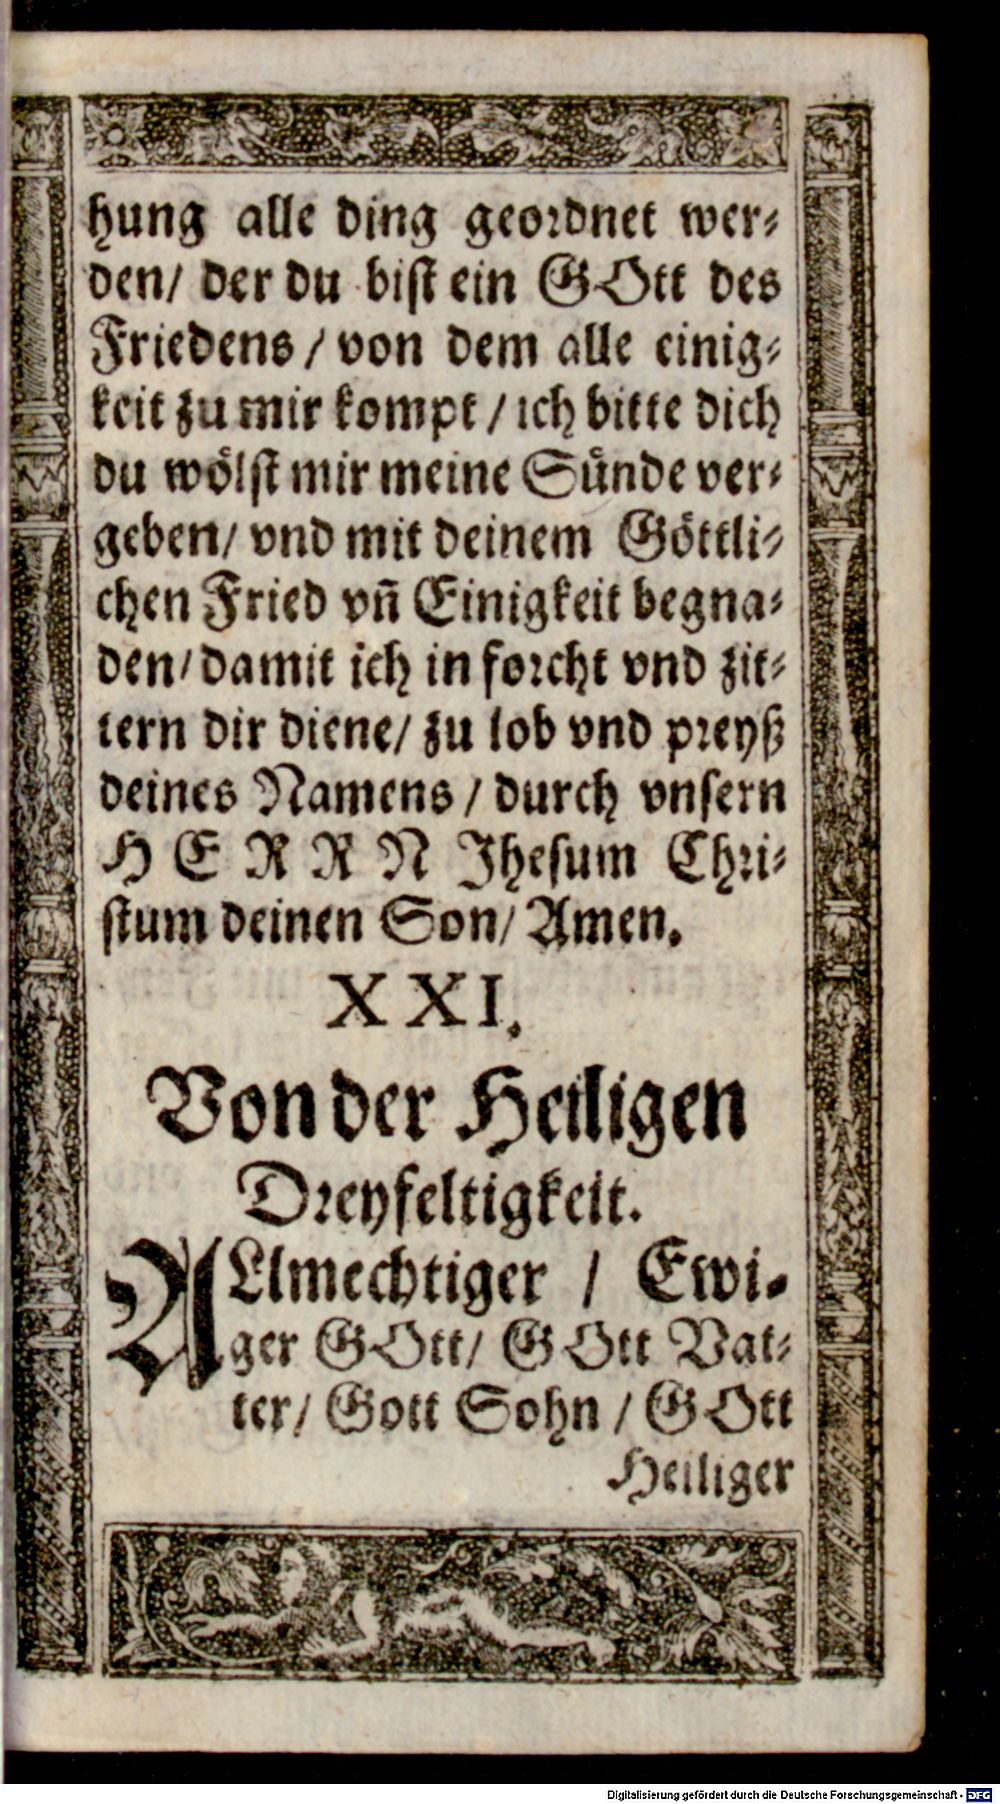 hung alle ding geordnet wer⸗
den/ der du bist ein GOtt des
Friedens / von dem alle einig⸗
keit zu mir kompt / ich bitte dich
du wölst mir meine Sünde ver⸗
geben/ vnd mit deinem Göttli⸗
chen Fried vñ Einigkeit begna⸗
den/ damit ich in forcht vnd zit⸗
tern dir diene/ zu lob vnd preyß
deines Namens / durch vnsern
HERRN Jhesum Chri⸗
stum deinen Son/ Amen.
XXI.
Von der Heiligen
Dreyfeltigkeit.
ALlmechtiger / Ewi⸗
ger GOtt/ GOtt Vat⸗
ter/ Gott Sohn / GOtt
Heiliger
Digitalisierung gefördert durch die Deutsche Forschungsgemeinschaft - DFG